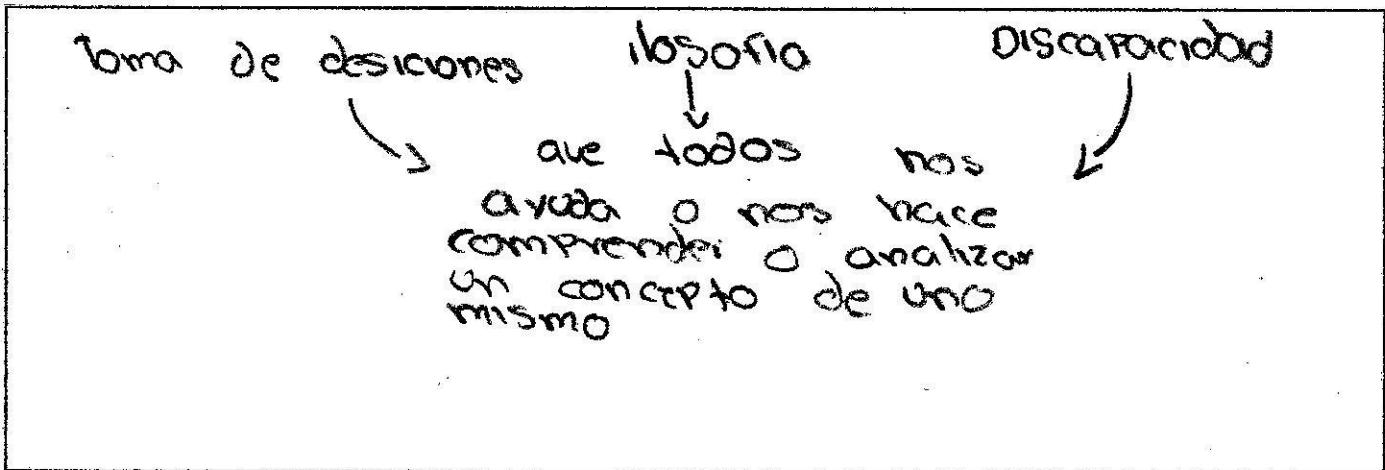 Toma de desiciones ilosofia Discapacidad
que todos nos
ayuda o nos hace
comprender o analizar
un concepto de uno
mismo